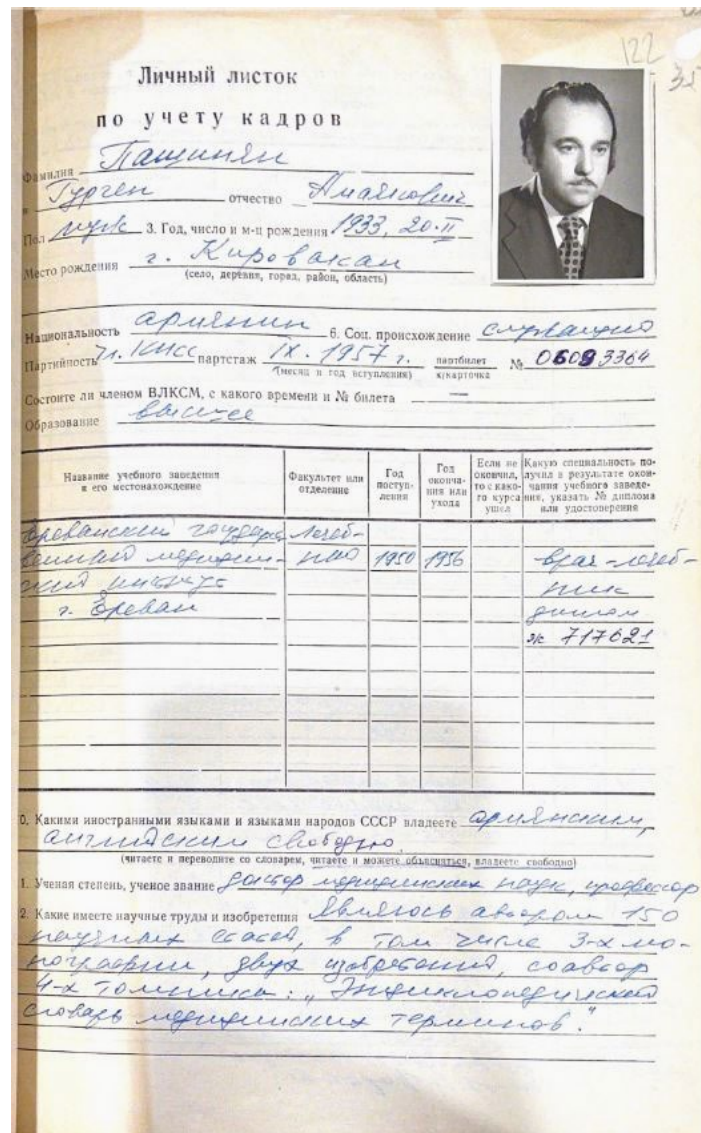 122
35
Личный листок
по учету кадров
Фамилия Пашинян
Гурген отчество Амаякович
Пол муж 3. Год, число и м-ц рождения 1933, 20.II
Место рождения г. Кировакан
(село, деревня, город, район, область)
Национальность армянин 6. Соц. происхождение служащий
Партийность чл. КПСС партстаж IX. 1957 г. партбилет № 06093364
(месяц и год вступления) к/карточка
Состоите ли членом ВЛКСМ, с какого времени и № билета —
Образование высшее
Название учебного заведения и его местонахождение
Факультет или отделение
Год поступ- ления
Год оконча- ния или ухода
Если не окончил, то с како- го курса ушел
Какую специальность по- лучил в результате окон- чания учебного заведе- ния, указать № диплома или удостоверения
Ереванский государст Лечеб-
венный медицин- ный 1950 1956 врач-лечеб-
ский институт ник
г. Ереван диплом
ж 717621
0. Какими иностранными языками и языками народов СССР владеете армянским,
английским свободно.
(читаете и переводите со словарем, читаете и можете объясняться, владеете свободно)
1. Ученая степень, ученое звание доктор медицинских наук, профессор
2. Какие имеете научные труды и изобретения Являюсь автором 150
научных статей, в том числе 3-х мо-
нографии, двух изобретений, соавтор
4-х томника: „Энциклопедический
словарь медицинских терминов."